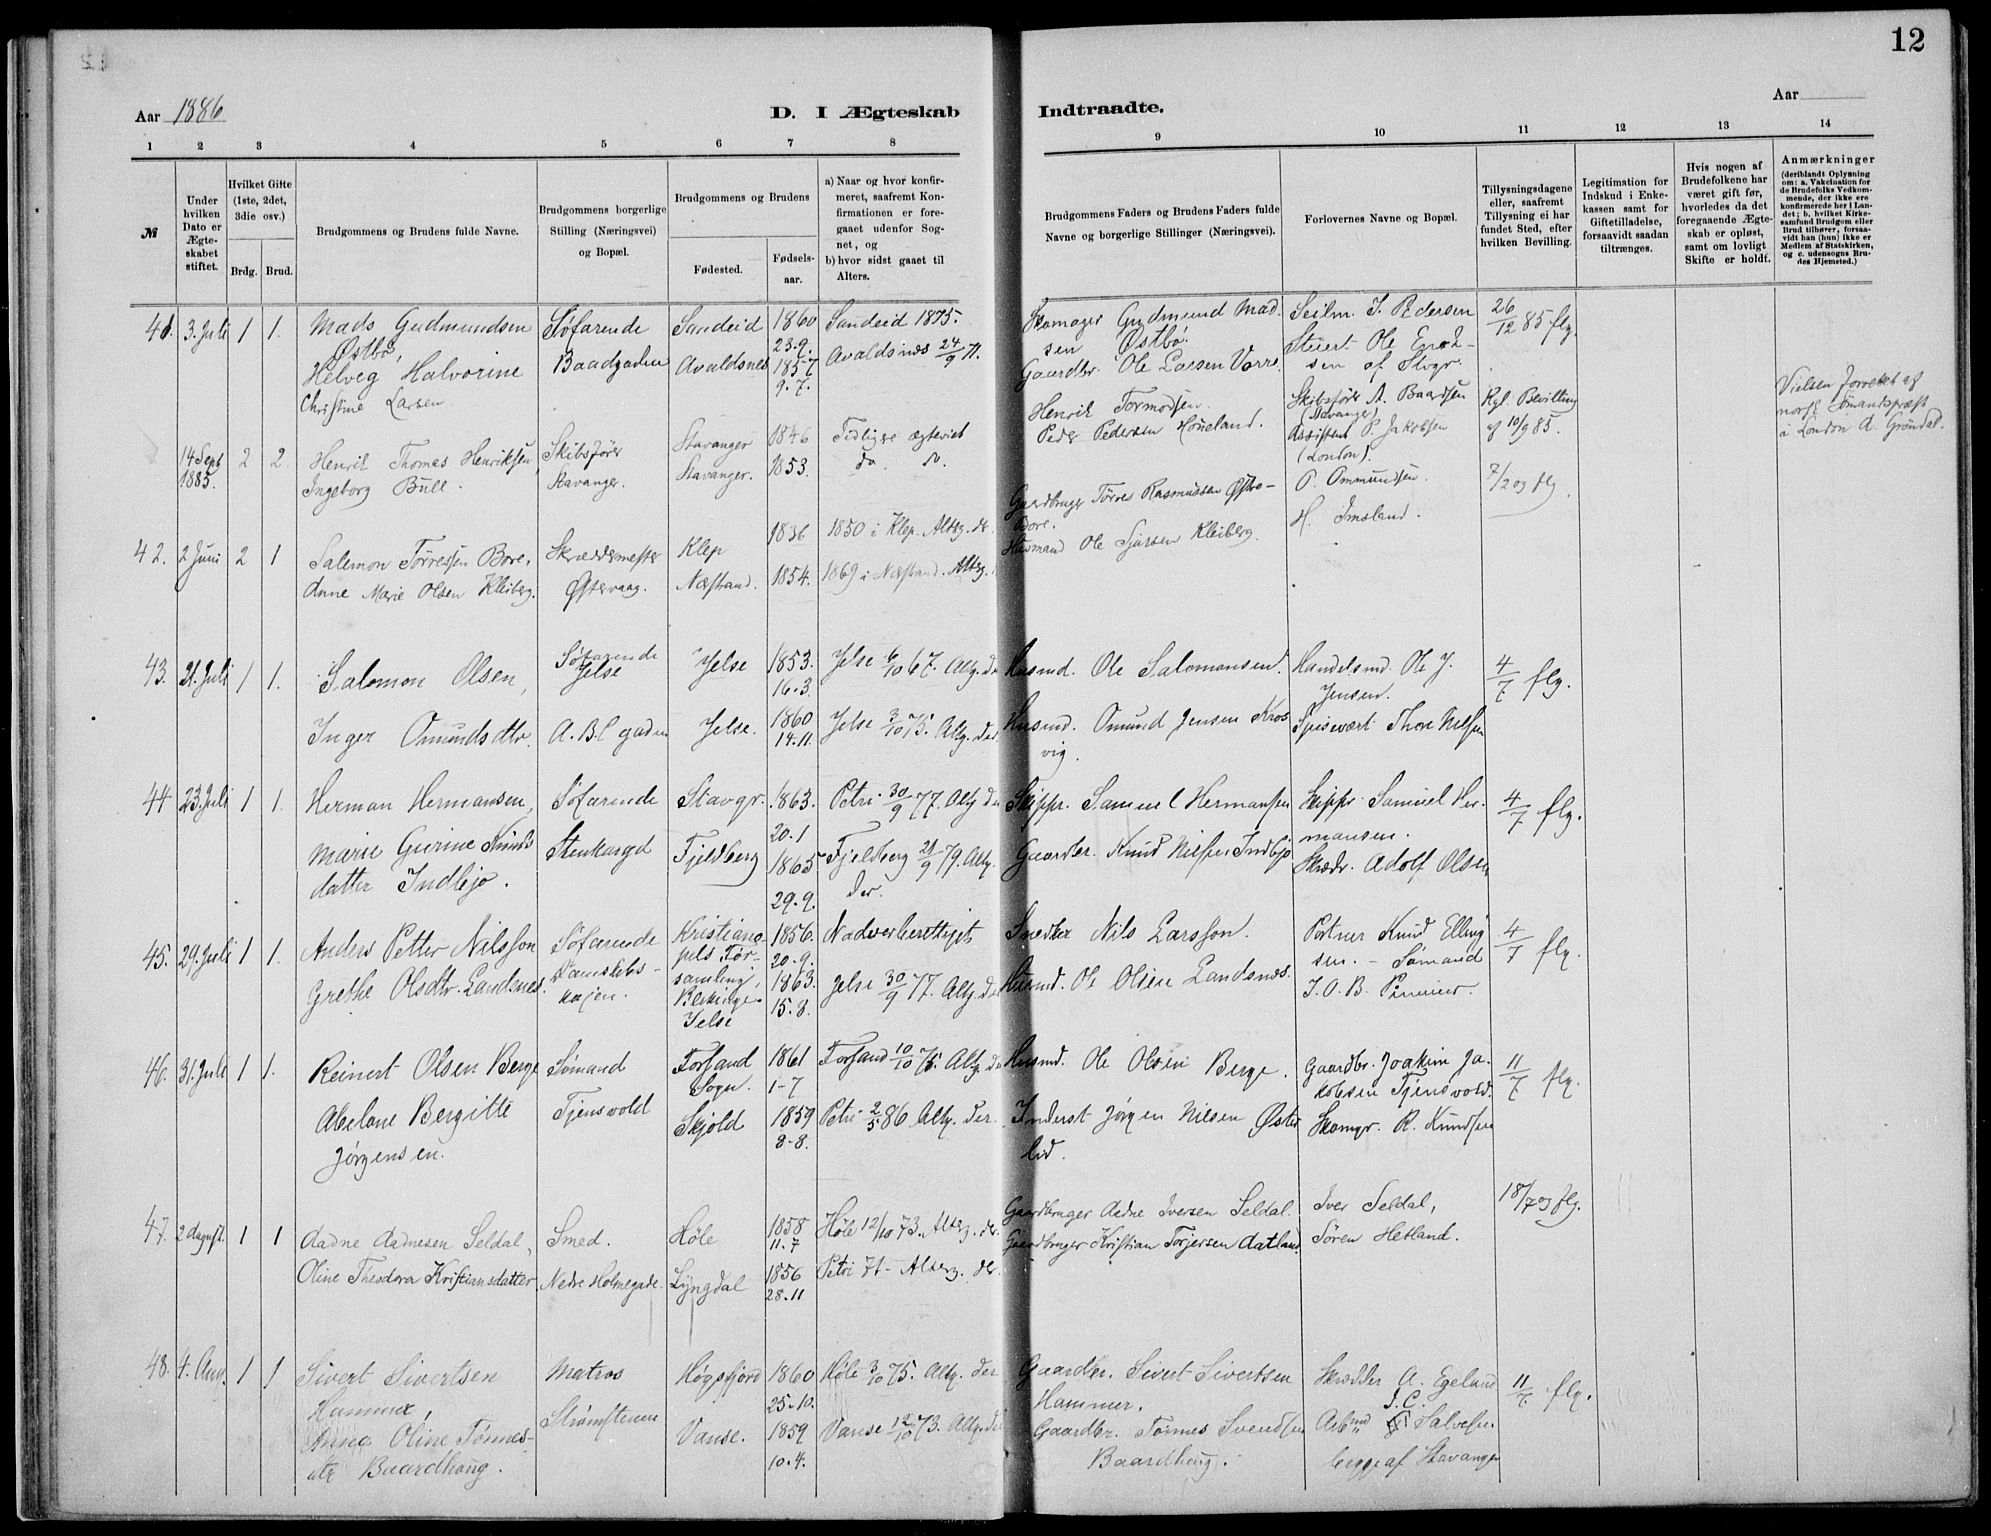 12
Aar 1886
D. I Ægteskab
Indtraadte.
Aar
1 2 3 4 5 6 7 8
9 10 11 12 13 14
№
Under hvilken Dato er Ægte-skabet stiftet.
Hvilket Gifte (1ste, 2det, 3die osv.)
Brdg. Brud.
Brudgommens og Brudens fulde Navne.
Brudgommens borgerlige Stilling (Næringsvei) og Bopæl.
Brudgommens og Brudens
Fødested.
Fødsels-aar.
a) Naar og hvor konfir-meret, saafremt Kon-firmationen er fore-gaaet udenfor Sog-net, og
b) hvor sidst gaaet til Alters.
Brudgommens Faders og Brudens Faders fulde Navne og borgerlige Stillinger (Næringsvei).
Forlovernes Navne og Bopæl.
Tillysningsdagene eller, saafremt Tillysning ei har fundet Sted, efter hvilken Bevilling.
Legitimation for Indskud i Enke-kassen samt for Giftetilladelse, forsaavidt saadan tiltrænges.
Hvis nogen af Brudefolkene har været gift før, hvorledes da det foregaaende Ægte-skab er opløst, samt om lovligt Skifte er holdt.
Anmærkninger
(deriblandt Oplysning om: a. Vakcination for de Brudefolks Vedkom-mende, der ikke ere konfirmerede her i Lan-det; b. hvilket Kirke-samfund Brudgom eller Brud tilhører, forsaa-vidt han (hun) ikke er Medlem af Statskirken, og c. udensogns Bru-des Hjemsted.)
41. 3. Juli 1 1. Mads Gudmundsen Søfarende Sandeid 1860 Sandeid 1875. Skomager Gudmund Mad- Seilm. I. Pedersen 26/12 85 flg.
Østbø, 23.9. sen Østbø. Stuert Ole Enok-
Helveg Halvorine Baadgaden Avaldsnes 1857 Avaldsnes 24/9 71. Gaardbr. Ole Larsen Varre sen af Stvgr.
Christine Larsen 9.7.
14 Sept 1885. 2 2. Henrik Thomas Henriksen Skibsfører Stavanger 1846 Tidligere ægteviet Henrik Tormodsen Skibsfører A. Baardsen Kgl. Bevilling Vielsen forrettet af
Ingeborg Bull. Stavanger. Stavanger. 1853. do. do. Peder Pedersen Houeland. (Stavanger) af 10/9 85. norsk Sømandspræst
Assistent P. Jakobsen i London A. Grøndal.
(London).
42. 2 Juni 2 1 Salemon Tørressen Bore, Skræddermester Klep 1836 1850 i Klep. Alterg. do Gaardbruger Tørres Rasmussen Østre- P. Ommundsen. 7/2 og flg.
Bore.
Anne Marie Olsen Kleiberg. Østervaag. Næstrand. 1854. 1869 i Næstrand. Alterg. Husmand Ole Sjursen Kleiberg. H. Imsland.
43. 21. Juli 1 1. Salomon Olsen, Søfarende Jelse Jelse 1853. Jelse 6/10 67. Altg. der Husmd. Ole Salomonsen. Handelsmd. Ole J. 4/7 flg.
16.3. Jensen.
Inger Omundsdtr. A.B.C gaden Jelse. 1860 Jelse 3/10 75. Altg. der. Husmd. Omund Jensen Kros Spisevært Thore Nilsen
14.11. vig.
44. 23. Juli 1 1. Herman Hermansen, Søfarende Stavgr. 1863. Petri 30/9 77. Altg. der Skippr. Samuel Hermansen Skippr. Samuel Her- 4/7 flg.
20.1 mansen.
Marie Gurine Knuds Stenkargd Fjeldberg 1865 Fjelberg 21/9 79. Altg. Gaardbr. Knud Nilsen Indbjo Skrædr. Adolf Olsen
datter Indbjo. 29.9. der.
45. 29. Juli 1 1. Anders Petter Nilsson Søfarende Kristiana- 1856. Nadverberettiget Snedker Nils Larsson. Portner Knud Elling 4/7 flg.
Damskibs- pels For- 20.9. sen. - Sømand
Grethe Olsdtr. Landsnes. kajen. samling, 1863. Jelse 30/9 77. Altg. der Husmd. Ole Olsen Landsnes. J.O.B.
Blekinge 15.8.
Jelse
46. 31. Juli 1 1. Reinert Olsen Berge Sømand Forsand 1861 Forsand 10/10 75. Altg. der Husmd. Ole Olsen Berge. Gaardbr. Joakim Ja- 11/7 flg.
Sogn. 1-7 kobsen Tjensvold.
Abelone Bergitte Tjensvold Skjold 1859 Petri 2/5 86 Altg. der. Inderst Jørgen Nilsen Øster Skomgr. R. Knudsen
Jørgensen. 8-8. lid.
47. 2 August. 1 1 Aadne Aadnesen Seldal, Smed. Høle 1858 Høle 12/10 73. Alterg. der. Gaardbruger Aadne Iversen Seldal. Iver Seldal, 18/7 og flg.
11.7
Oline Theodora Kristiansdatter, Nedre Holmegade. Lyngdal 1856 Petri 71 - Alterg. der. Gaardbruger Kristian Torjersen Aatland Søren Hetland.
28.11
48. 4. Aug. 1 1 Sivert Sivertsen Matros Høgsfjord 1860 Høle 3/10 75. Altg. der Gaardbr. Sivert Sivertsen Skrædder A. Egeland 11/7 flg.
Hammer, 25.10. Hammer. J.C.
Anna Oline Tønnes- Strømstenen Vanse. 1859 Vanse 12/10 73. Altg. der Gaardbr. Tønnes Svendsen Arbmd Salvesen
dtr Baardhaug. 10.4. Baardhaug. begge af Stavanger